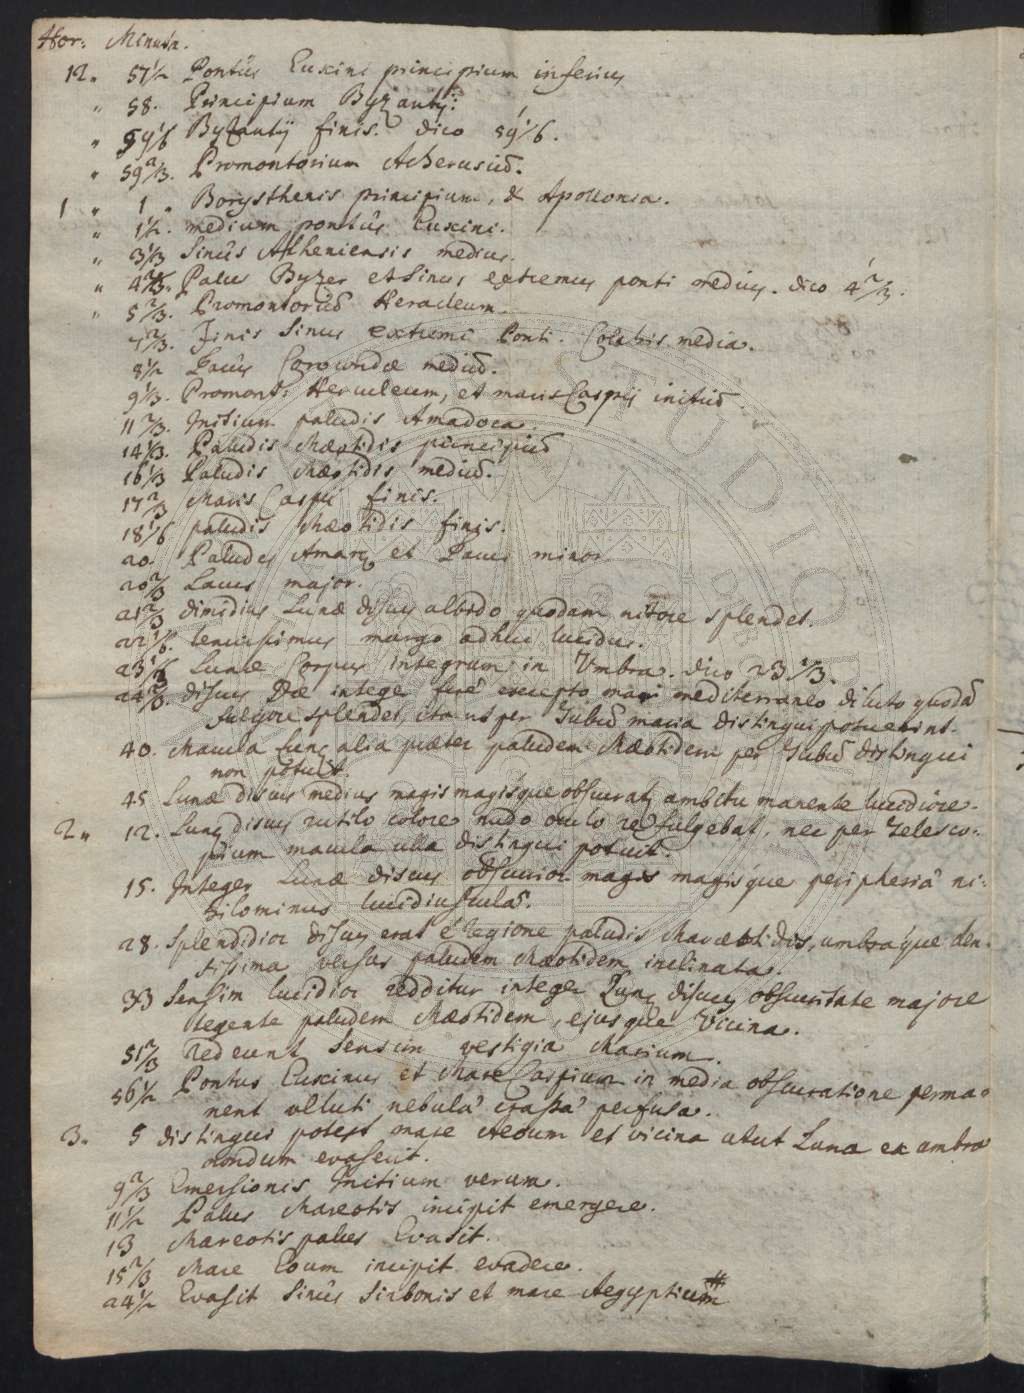 Hor: Minuta.
12. 57½ Pontûs Euxini principium inferius
" 58. Principium Byzantij:
" 59⅙ Byzantij finis. dico 59⅙.
" 59⅔. Promontorium Acherusiū.
1 " 1. Borysthenis principium, & Apollonia.
" 1½. medium pontûs Euxini.
" 3⅓ Sinûs Atheniensis medius.
" 4⅔. Palus Byzes et Sinus extremus ponti medius. dico 4⅔.
" 5⅔. Promontoriū Heracleum.
7⅔. Finis Sinus extremi Ponti. Colchis media.
8½ Lacûs Corocondæ mediū.
9⅓. Promont: Herculeum, et maris Caspij initiū.
11⅔. Initium paludis Amadoca.
14⅓. Paludis Mæotidis principiū
16⅓ Paludis Mæotidis mediū.
17⅔ Maris Caspii finis.
18⅙ paludis Mæotidis finis.
20. Paludes Amaræ et Lacus minor
20⅔ Lacus major.
21⅔ dimidius Lunæ discus albedo quodam nitore splendet.
22⅙. tenuissimus margo adhuc lucidus.
23⅓ Lunæ Corpus integrum in Umbra. dico 23⅓.
24⅔. discus Dæ integer ferè excepto mari mediterraneo diluto quodā
fulgore splendet, ita ut per Tubū maria distingui potuerint.
40. Macula Lunę alia præter paludem Mæotidem per Tubū distingui
non potuit.
45 Lunæ discus medius magis magisque obscurat9 ambitu manente lucidiore.
2" 12. Lunę discus rutilo colore nudo oculo refulgebat, nec per Telesco-
pium macula ulla distingui potuit.
15. Integer Lunæ discus obscurior magis magisque peripheriâ ni-
hilominus lucidiuscula.
28. Splendidior discus erat è regione paludis Maræotidis, umbraque den-
sissima versus paludem Mæotidem inclinata.
33 Sensim lucidior redditur integer Lunę discus obscuritate majore
tegente paludem Mæotidem, ejusque Vicina.
51⅔ redeunt sensim vestigia Marium.
56½ Pontus Euxinus et Mare Caspium in media obscuratione perma-
nent veluti nebulâ crassâ perfusa.
3. 5 distingui potest mare Aeoum et vicina utut Luna ex umbra
nondum evaserit.
9⅔ Emersionis Initium verum.
11½ Palus Mareotis incipit emergere.
13 Mareotis palus Evasit.
15⅔ Mare Eoum incipit evadere.
24½ Evasit Sinûs Sirbonis et mare Aegyptium